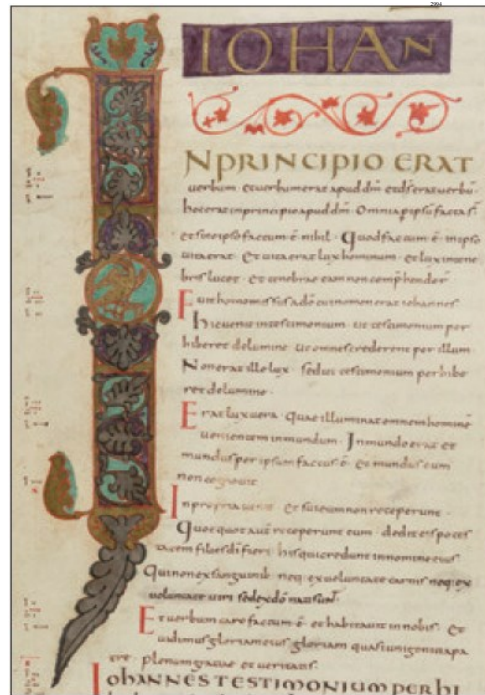 IOHAN
NPRINCIPIO ERAT
uerbum. Et uerbum erat apud dm̄. et ds̄ erat uerbū.
hoc erat in principio apud dm̄. Omnia p ipsū facta sī.
et sine ipso factum ē nihil. Quod factum ē in ipso
uita erat. Et uita erat lux hominum. et lux in tene
bris lucet. Et tenebrae eam non comp̄hender̄
Fuit homo missus a dō cui nomen erat iohannes.
hic uenit in testimonium. ut testimonium per
hiberet de lumine. ut omnes crederent per illum.
Non erat ille lux. sed ut testimonium perhibe
ret de lumine.
Erat lux uera. Quae illuminat omnem hominē
uenientem in mundum. In mundo erat et
mundus per ipsum factus ē. Et mundus eum
non cognouit
In propria uenit. Et sui eum non receperunt.
Quotquot aut̄ receperunt eum. dedit eis potes
tatem filios dī fieri. his qui credunt in nomine eius
Qui non ex sanguinib. neq. ex uoluntate carnis neq. ex
uoluntate uiri sed ex dō nati sunt.
Et uerbum caro factum ē. et habitauit in nobis. Et
uidimus gloriam eius. gloriam quasi unigeniti a pa
tre plenum gratiae et ueritatis.
IOHANNES TESTIMONIUM PER HI